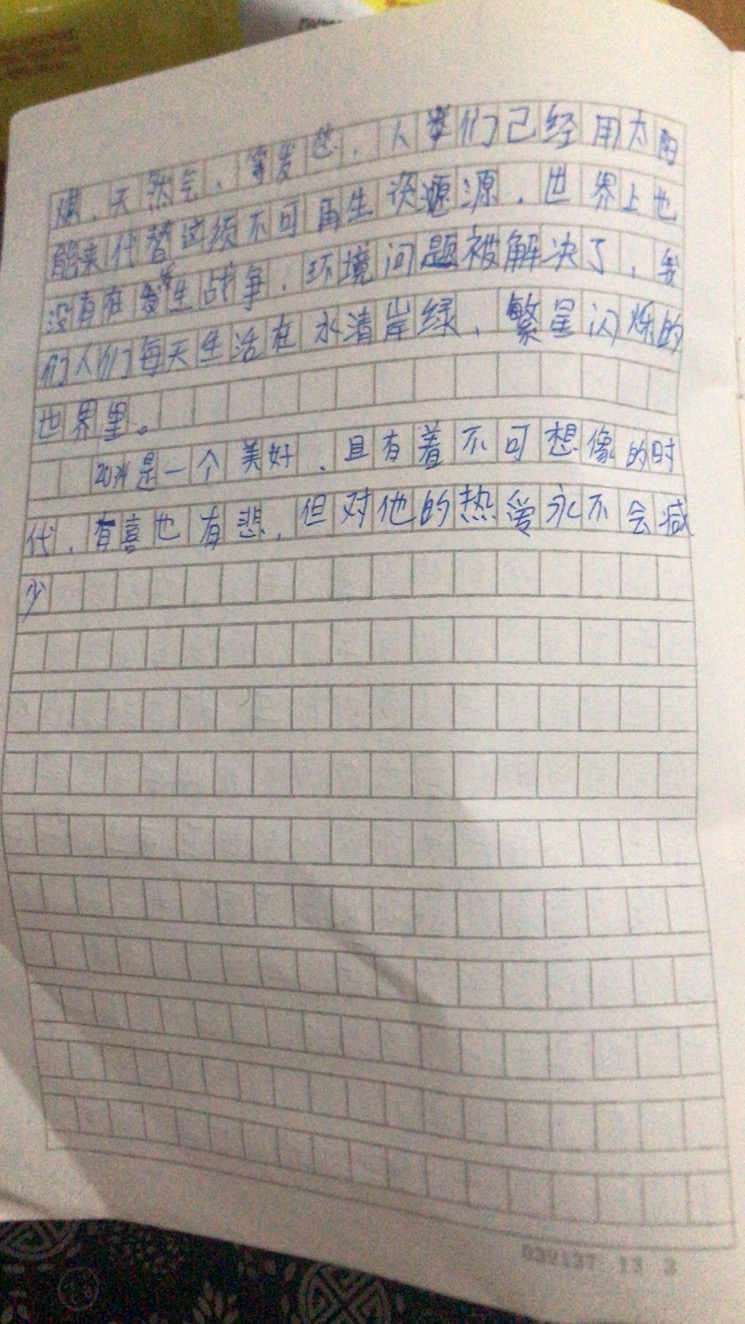 煤、天然气、等发愁，人类们已经用太阳
能来代替这须不可再生资源源，世界上也
没有在发生战争，环境问题被解决了，我
们人们每天生活在水清岸绿、繁星闪烁的
世界里。
是一个美好、且有着不可想像的时
代，有喜也有悲，但对他的热爱永不会减
少